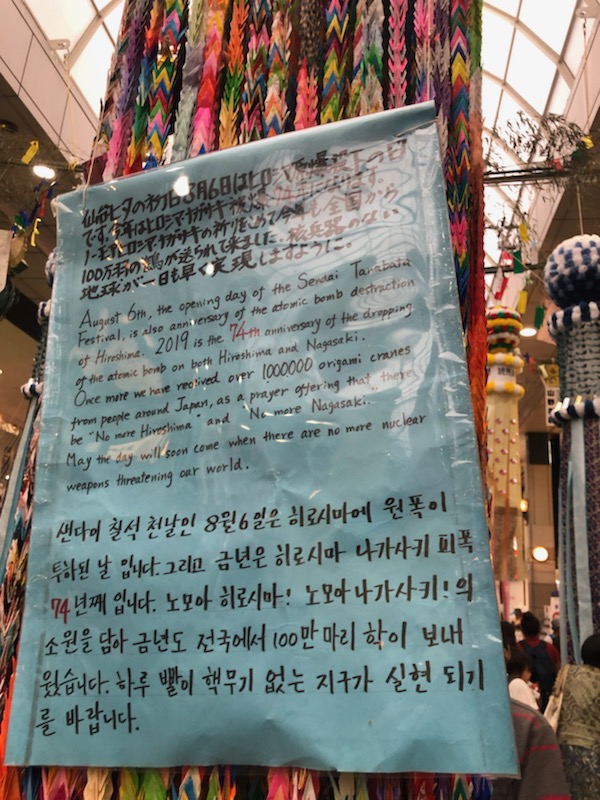 仙台七夕の初日8月6日はヒロシマ原爆投下の日
です。今年はヒロシマ・ナガサキ
ノーモアヒロシマ・ナガサキの祈りをこめて今年も全国から
100万羽の鶴が送られて来ました。核兵器のない
地球が一日も早く実現しますように。
August 6th, the opening day of the Sendai Tanabata
Festival, is also anniversary of the atomic bomb destruction
of Hiroshima. 2019 is the 74th anniversary of the dropping
of the atomic bomb on both Hiroshima and Nagasaki.
Once more we have received over 1,000000 origami cranes
from people around Japan, as a prayer offering that there
be "No more Hiroshima" and "No more Nagasaki".
May the day will soon come when there are no more nuclear
weapons threatening our world.
샌다이 칠석 천날인 8월6일은 히로시마에 원폭이
투하된 날 입니다.그리고 금년은 히로시마 나가사키 피폭
74년째 입니다. 노모아 히로시마! 노모아나가사키!의
소원을 담아 금년도 전국에서 100만 마리 학이 보내
웠습니다. 하루 빨이 핵무기 없는 지구가 실현 되기
를 바랍니다.